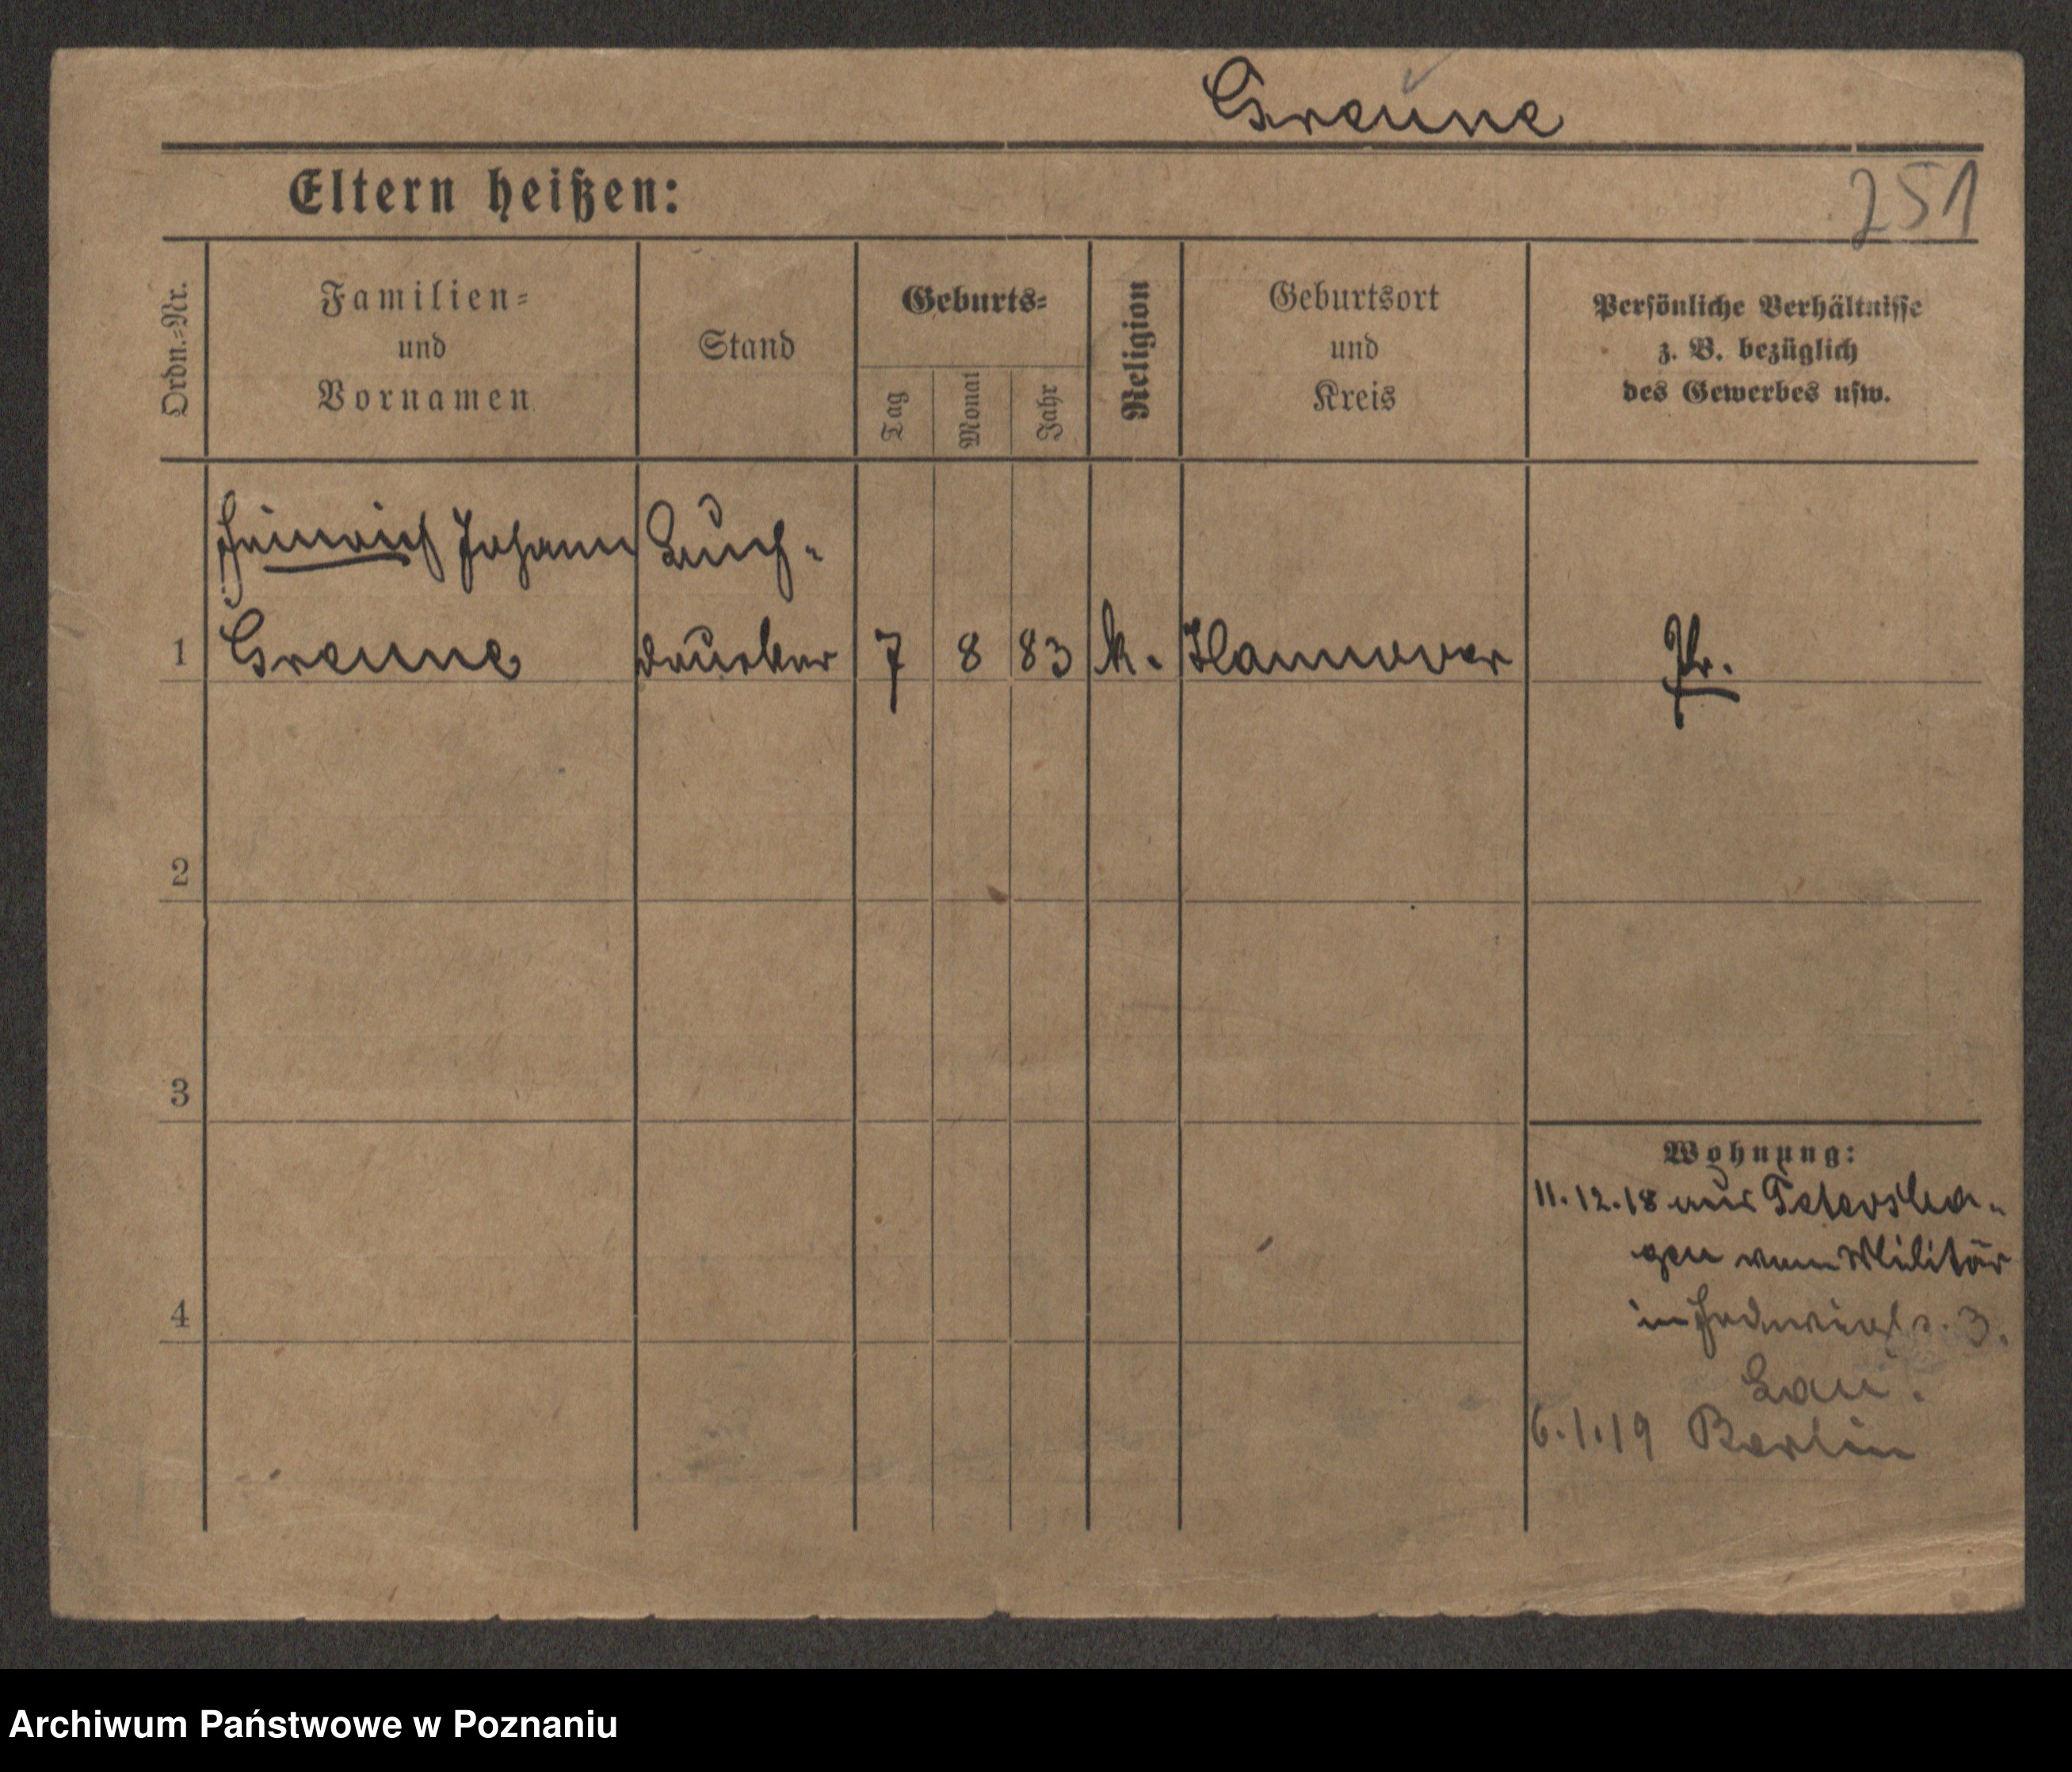 Greune
Eltern heißen:
251
Ordn.=Nr.
Familien=
und
Vornamen
Stand
Geburts=
Tag
Monat
Jahr
Religion
Geburtsort
und
Kreis
Persönliche Verhältnisse
z. B. bezüglich
des Gewerbes usw.
Heinrich Johann Buch-
1 Greune drucker 7 8 83 k. Hannover Pr.
2
3
4
Wohnung:
11.12.18 aus
gen vom Militär
in 3.
Lau.
6.1.19 Berlin
Archiwum Państwowe w Poznaniu